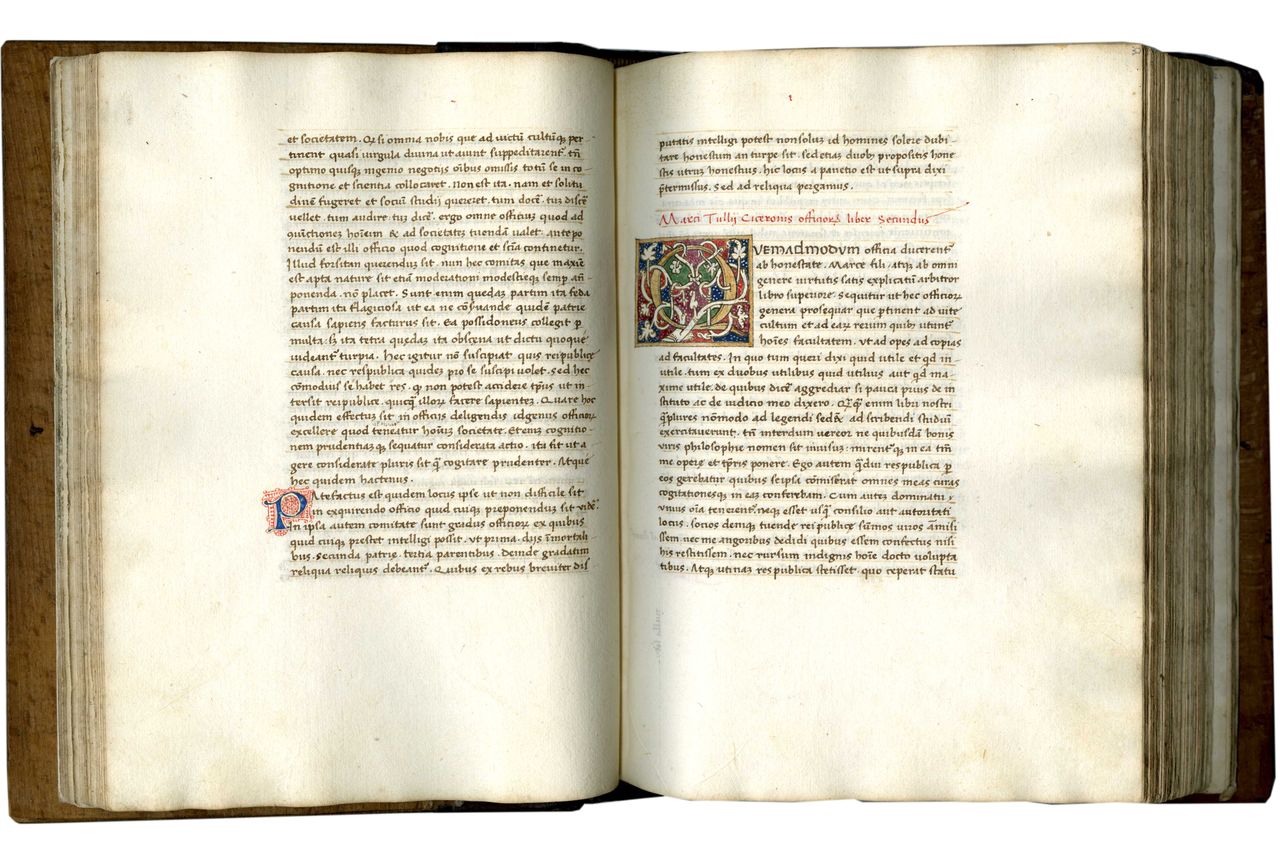 et societatem. Q si omnia nobis que ad victũ cultũqȝ per
tinent quasi virgula divina ut aiunt suppeditarent̃. tñ
optimo quisqȝ ingenio negotiis oĩbus omissis totũ se in co
gnitione et scientia collocaret. Non est ita. nam et solitu
dinẽ fugeret et sociũ studii quereret. tum docẽ. tuȝ discẽ
vellet. tum audire. tuȝ dicẽ. ergo omne officiuȝ quod ad
ɔiũctiones hoĩem & ad societateȝ tuendã valet. antepo
nendũ est illi officio quod cognitione et sciã continetur.
Illud forsitan querenduȝ sit. nun hec comitas que maxiẽ
est apta nature sit etiã moderationi modestieqȝ semp añ
ponenda. nõ placet. Sunt enim quedaȝ partim ita feda
partim ita flagiciosa ut ea ne cõservande quideȝ patrie
causa sapiens facturus sit. Ea possidoneus collegit p
multa. sȝ ita tetra quedaȝ ita obscena ut dictu quoque
videant̃ turpia. Hec igitur nõ suscipiat quis reipublice
causa. nec respublica quideȝ pro se suscipi volet. sed hec
cõmodius se habet res. q non potest accidere tp̃us ut in
tersit reipublice. quicq̃ illoȝ facere sapienteȝ. Quare hoc
quidem effectuȝ sit in officiis deligendis id genus officioꝝ
excellere quod teneatur hoĩuȝ societate. Etenȝ cognitio
nem prudentiaȝ qȝ sequatur considerata actio. ita fit ut a
gere considerate pluris sit q̃ cogitare prudenter. Atque
hec quidem hactenus.
Patefactus est quidem locus ipse ut non difficile sit
in exquirendo officio quid cuiqȝ preponenduȝ sit vidẽ.
In ipsa autem comitate sunt gradus officioꝝ ex quibus
quid cuiqȝ prestet intelligi possit. ut prima. diis ĩmortali
bus. Secunda patrie. tertia parentibus. Deinde gradatim
reliqua reliquis debeant̃. Quibus ex rebus breviter dis
putatis intelligi potest non soluȝ id homines solere dubi
tare honestum an turpe sit. sed etiaȝ duobȝ propositis hone
stis utruȝ honestius. hic locus a panetio est ut supra dixi
p̃termissus. Sed ad reliqua pergamus.
Marci Tullii Ciceronis officioꝝ liber Secundus
QVEMADMODVM officia ducerent̃
ab honestate. Marce fili. atqȝ ab omni
genere virtutis satis explicatũ arbitror
libro superiore. Sequitur ut hec officioꝝ
genera prosequar que ptinent ad vite
cultum et ad eaꝝ rerum quibȝ utunt̃
hoĩes facultatem. vt ad opes ad copias
ad facultates. In quo tum queri dixi quid utile et qd in
utile. tum ex duobus utilibus quid utilius aut qd ma
xime utile. de quibus dicẽ aggrediar si pauca prius de in
stituto ac de iudicio meo dixero. Qq̃ȝ enim libri nostri
q̃plures nõmodo ad legendi sedeȝ ad scribendi studiũ
exercitaverunt. tñ interdum vereor ne quibusdã bonis
viris philosophie nomen sit invisuȝ. mirent̃qȝ in ea tm̃
me opere et tp̃ris ponere. Ego autem q̃diu respublica p
eos gerebatur quibus se ipsa cõmiserat omnes meas curas
cogitationesqȝ in eaȝ conferebam. Cum auteȝ dominatu
vnius oĩa tenerent̃. neqȝ esset usq̃ consilio aut autoritati
locus. socios deniqȝ tuende rei publice sum̃os viros amisi
ssem. nec me angoribus dedidi quibus essem confectus nisi
his restitissem. nec rursum indignis hoĩe docto volupta
tibus. Atqȝ utinaȝ respublica stetisset. quo ceperit statu